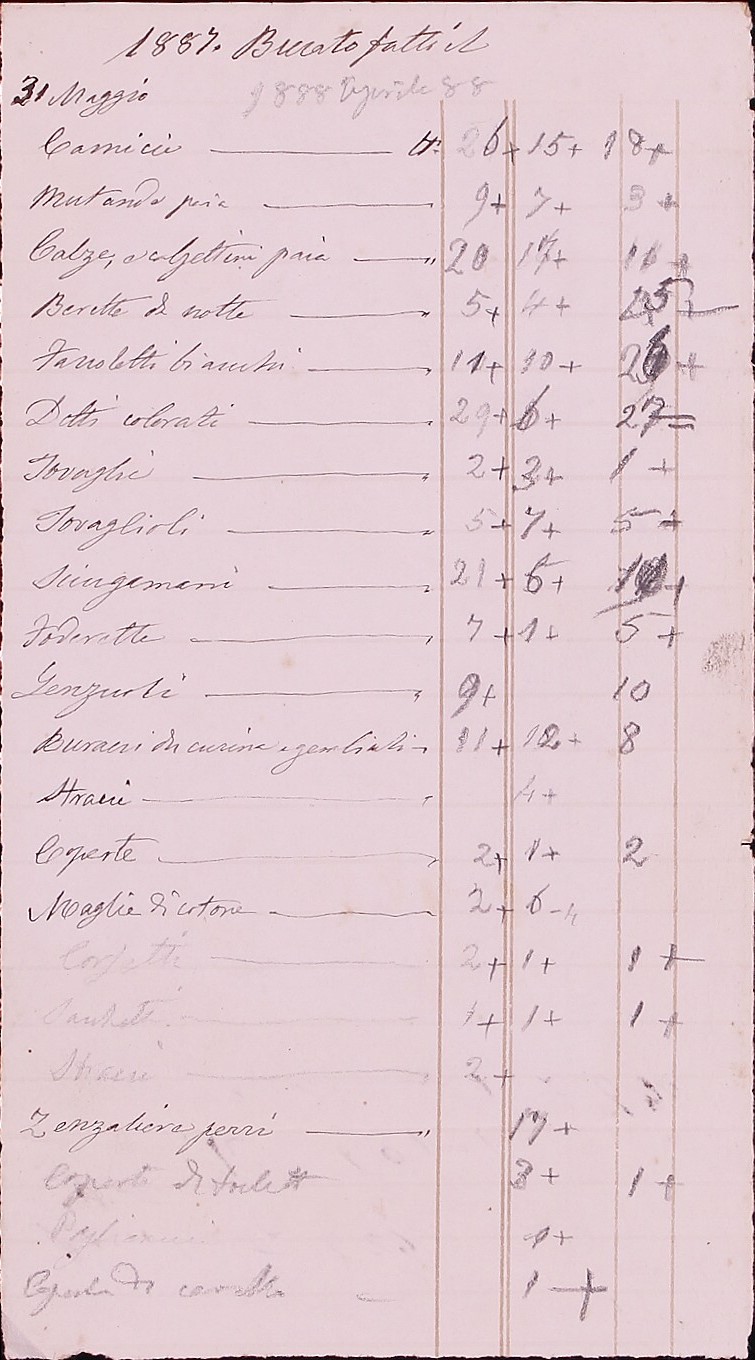 1887. Bucato fatto il
31 Maggio 1888 Aprile 88
Camicie N: 26+ 15+ 18+
Mutande paia " 9+ 7+ 3+
Calze, e calzettini paia " 20 17+ 11+
Berette di notte " 5+ 4+
Fazoletti bianchi " 11+ 10+ 26+
Detti colorati " 29+ 6+ 27=
Tovaglie " 2+ 3+ 1+
Tovaglioli " 5+ 7+ 5+
Sciugamani " 21+ 6+
Foderette " 7+ 1+ 5+
Lenzuoli " 9+ 10
Burazzi di cucina e " 11+ 12+ 8
Stracci " 4+
Coperte " 2+ 1+ 2
Maglie di cotone 2+ 6-4
Corpetti 2+ 1+ 1+
1+ 1+ 1+
Stracci 2+
Zenzaliere pezzi " 17+
Coperte di toelett 3+ 1+
1+
Coperta di 1+